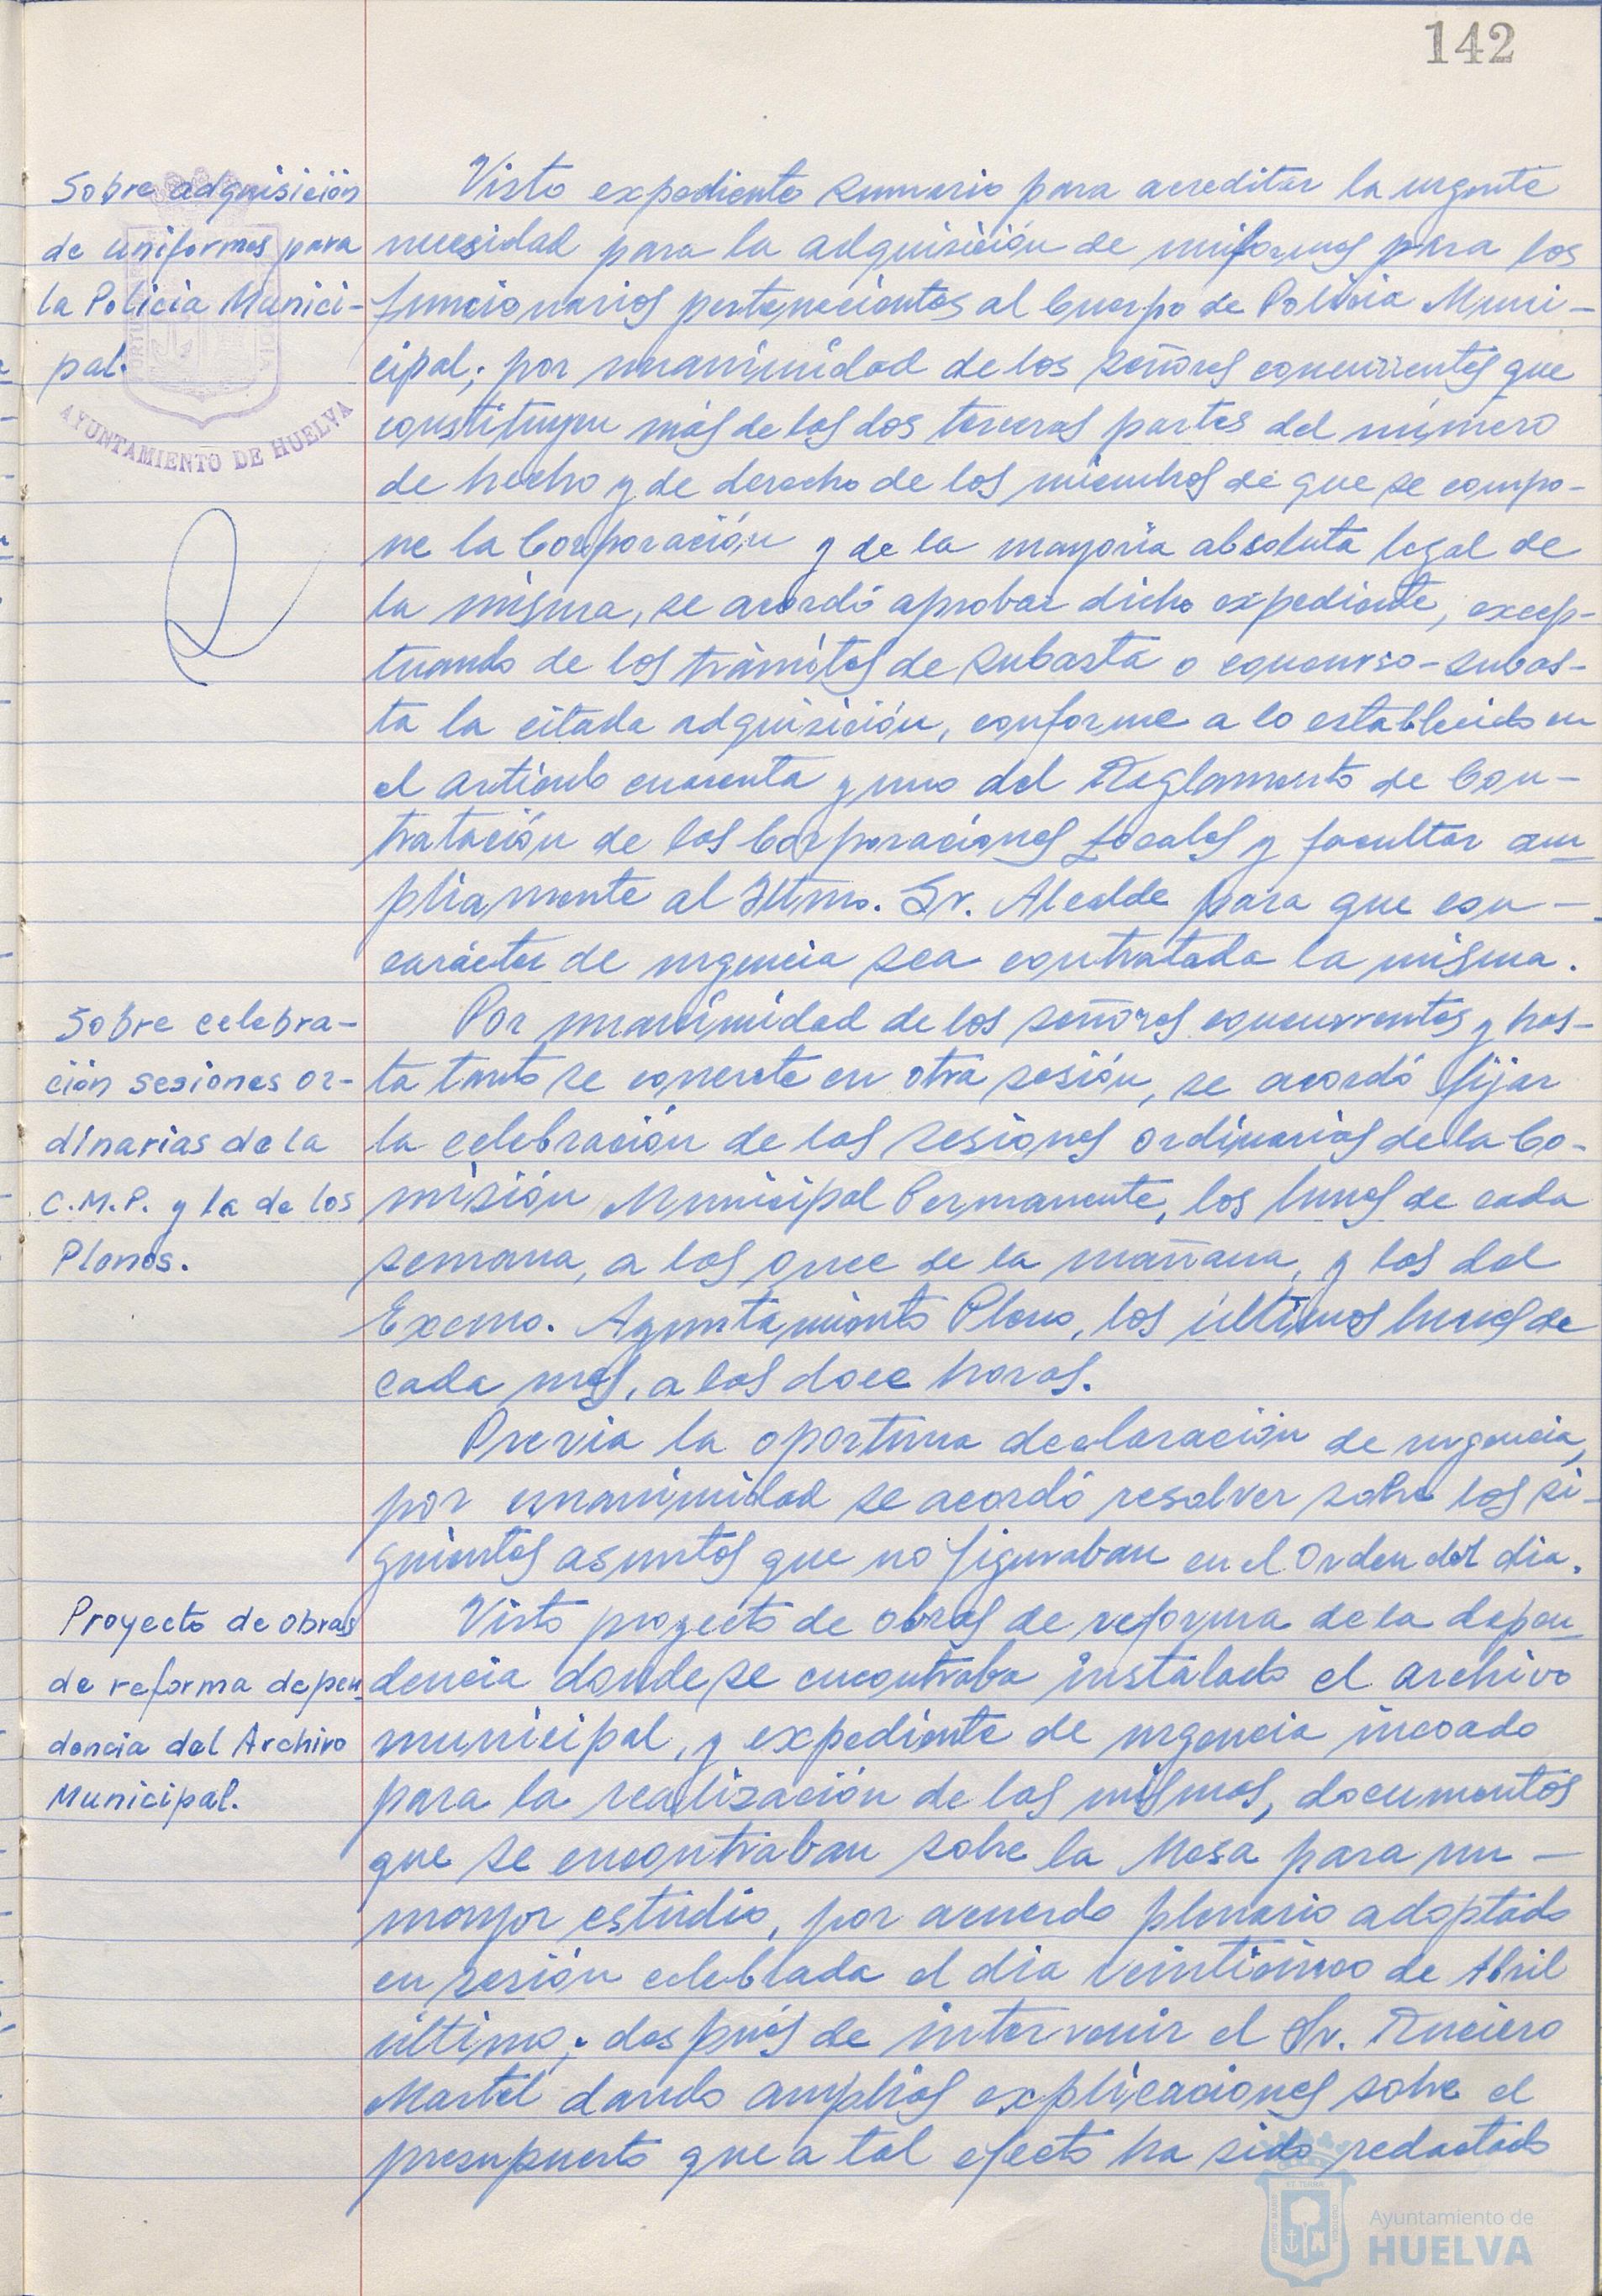 142
Sobre adquisición
de uniformes para
la Policia Munici-
pal.
AYUNTAMIENTO DE HUELVA
Visto expediente sumario para acreditar la urgente
necesidad para la adquisición de uniformes para los
funcionarios pertenecientes al Cuerpo de Policia Muni-
cipal; por unanimidad de los señores concurrentes que
constituyen más de las dos terceras partes del número
de hecho y de derecho de los miembros de que se compo-
ne la Corporación y de la mayoria absoluta legal de
la misma, se acordó aprobar dicho expediente, excep-
tuando de los trámites de subasta o concurso-subas-
ta la citada adquisición, conforme a lo establecido en
el articulo cuarenta y uno del Reglamento de Con-
tratación de las Corporaciones Locales y facultar am-
pliamente al Iltmo. Sr. Alcalde para que con-
carácter de urgencia sea contratada la misma.
Sobre celebra-
ción sesiones or-
dinarias de la
C.M.P. y la de los
Plenos.
Por unanimidad de los señores concurrentes y has-
ta tanto se concrete en otra sesión, se acordó fijar
la celebración de las sesiones ordinarias de la Co-
misión Municipal Permanente, los lunes de cada
semana, a las once de la mañana, y las del
Excmo. Ayuntamiento Pleno, los últimos lunes de
cada mes, a las doce horas.
Previa la oportuna declaración de urgencia,
por unanimidad se acordó resolver sobre los si-
guientes asuntos que no figuraban en el Orden del dia.
Proyecto de obras
de reforma depen-
dencia del Archivo
Municipal.
Visto proyecto de obras de reforma de la depen-
dencia donde se encontraba instalado el archivo
municipal, y expediente de urgencia incoado
para la realización de las mismas, documentos
que se encontraban sobre la Mesa para un-
mayor estudio, por acuerdo plenario adoptado
en sesión celebrada el dia veinticinco de Abril
último; después de intervenir el Sr. Ruciero
Martel dando amplias explicaciones sobre el
presupuesto que a tal efecto ha sido redactado
Ayuntamiento de
HUELVA